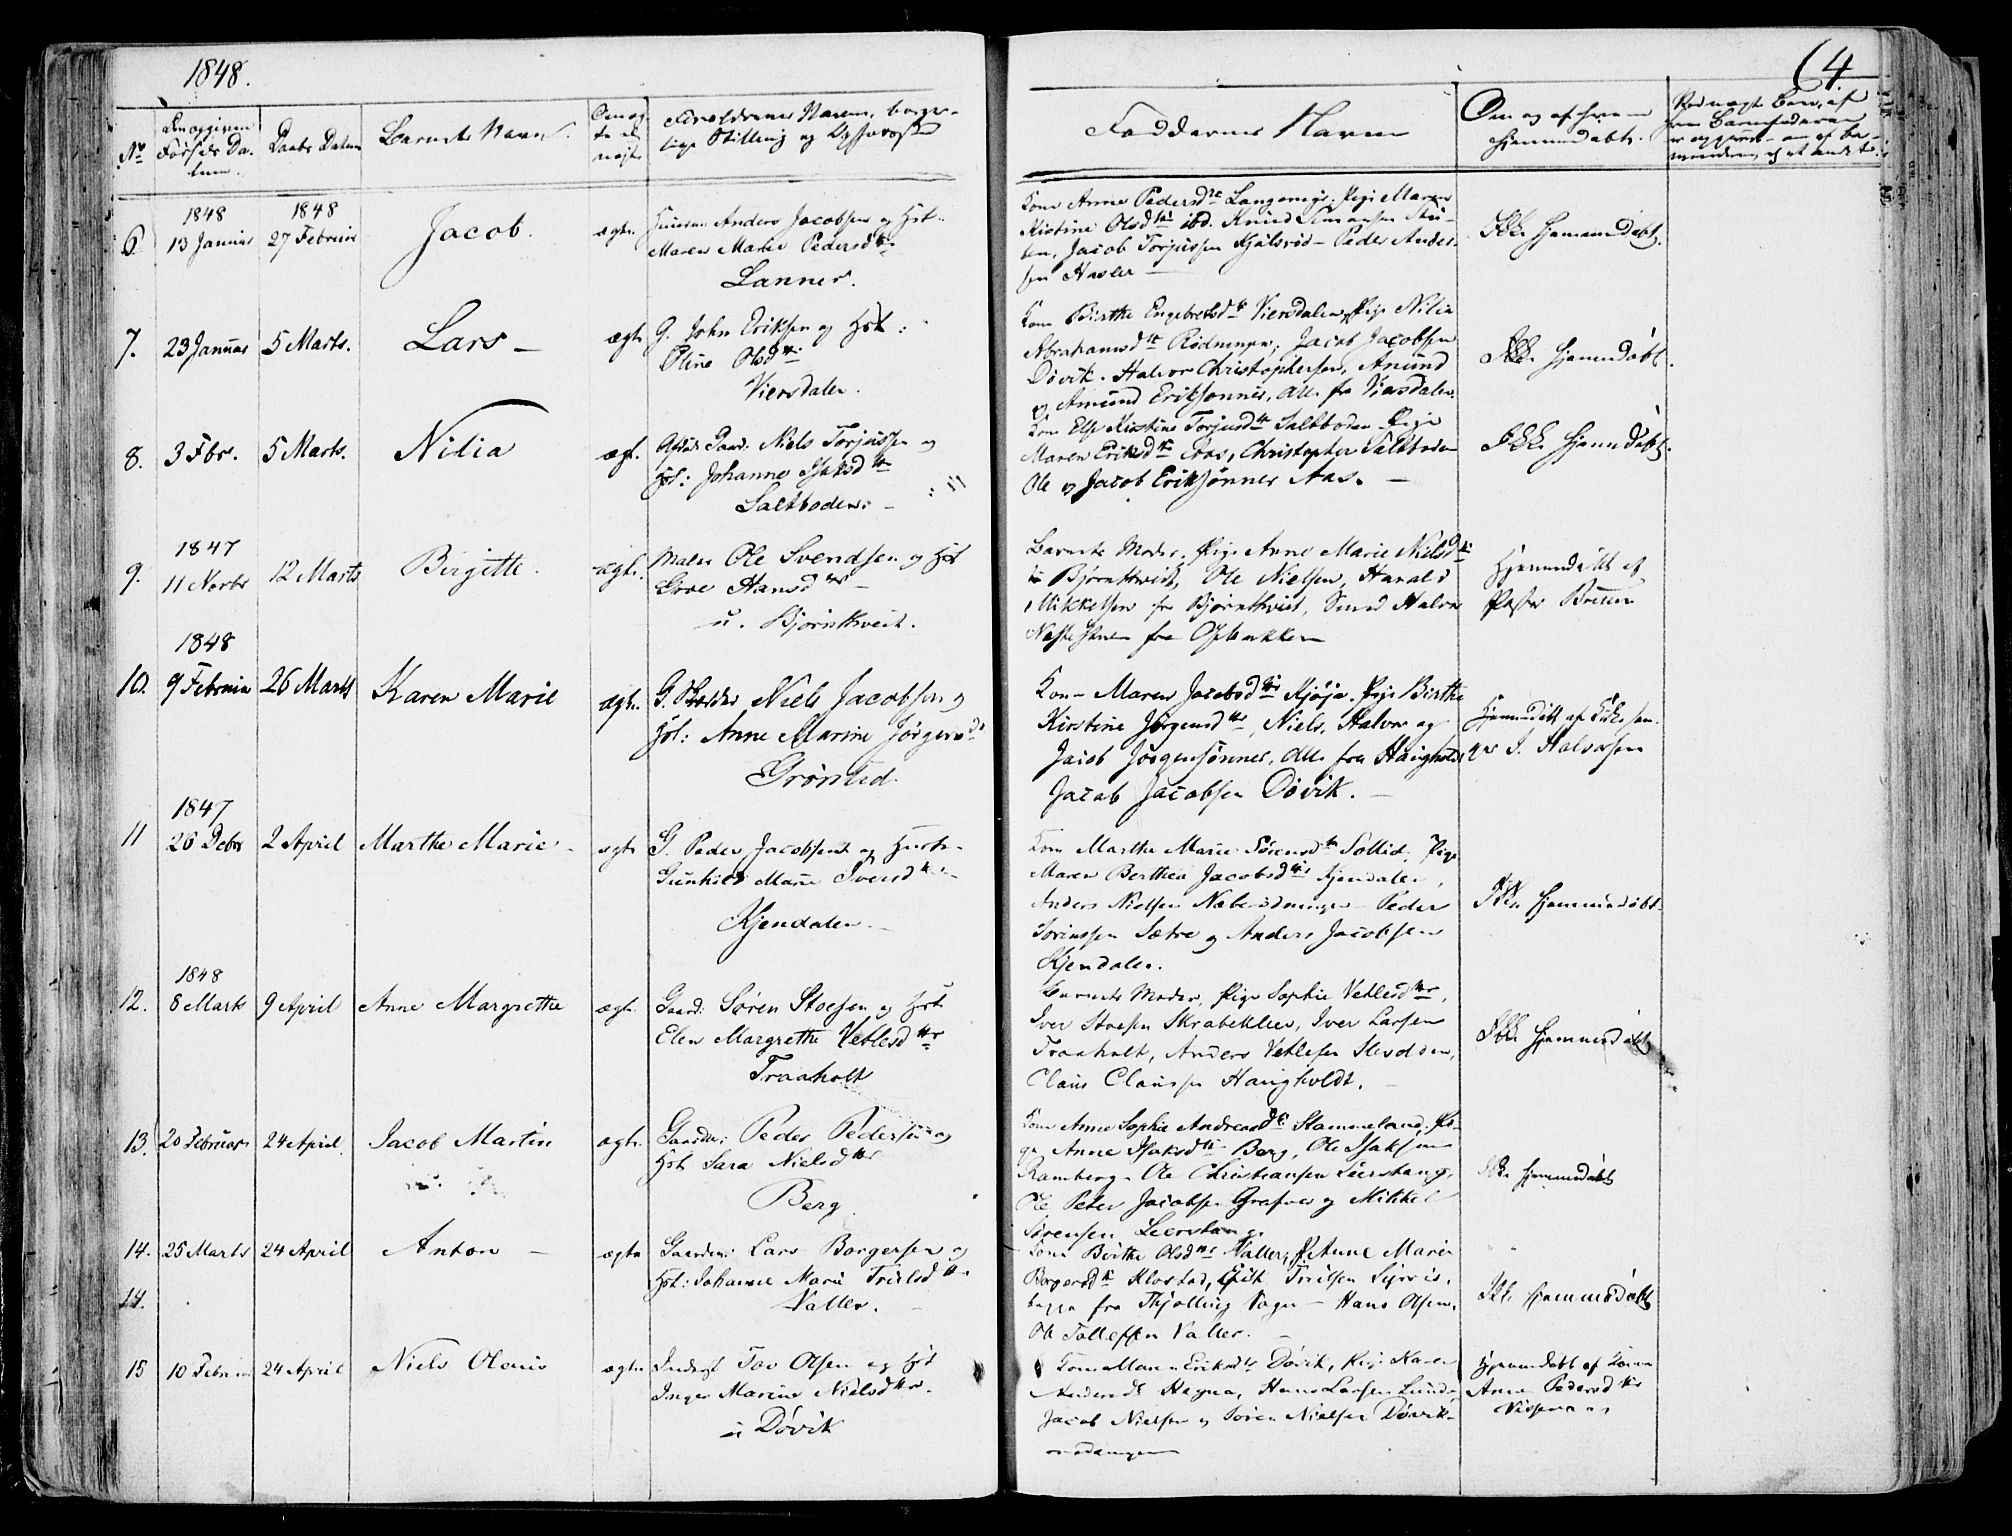 1848.
64
No
Den opgivne Fødsels Datum.
Daabs Datum
Barnets Navn.
Om ægte el. uægte
Forældrenes Navne, borgerlige Stilling og Opholdssted
Faddernes Navne
Om og af hvem hjemmedøbt.
6.
1848
13 Januar
1848
27 Februar
Jacob.
ægte
Huusm. Anders Jacobsen og Hst.
Maren Marie Pedersdtr
Lanner.
Kone Anne Pedersdtr Langemyr. Pige Maren
Kistine Olsdtr ibd. Knud Simensen
Jacob Torjussen Peder Anders-
sen Hasler
Ikke Hjemmedøbt.
7.
23 Januar
5 Marts.
Lars
ægte
G. John Eriksen og Hst:
Oline Olsdtr
Viersdalen.
Kone Birthe Engebretsdtr Viersdalen, Pige Nilia
Abrahamsdtr Rødningen, Jacob Jacobsen
Døvik. Halvor Christophersen, Amund
og Amund Eriksønner, alle fra Viersdalen
Ikke hjemmedøbt.
8.
3 Fbr.
5 Marts.
Nilia
ægt.
Niels Torjussen og
Hst: Johanne Isaksdtr
Saltboden.
Kone Else Kirstine Torjusdtr Saltboden Pige
Maren Eriksdtr Aas, Christopher Saltboden
Ole og Jacob Eriksønner Aas.
Ikke hjemmedøbt.
9.
1847
11 Novbr
12 Marts
Birgitte.
ægte.
Maler Ole Svendsen og Hst
Groe Hansdtr
u. Bjørnthveit.
Barnets Moder, Pige Anne Marie Nielsdtr
Bjørnthvedt, Ole Nielsen, Harald
Mikkelsen fra Bjørnthvet, Halvor
fra
Hjemmedøbt af
Pastor Bruun
1848
10.
9 Februar
26 Marts
Karen Marie
ægte.
G. Niels Jacobsen og
Hst: Anne Marine Jørgensdt
Grønsted.
Kone Maren Jacobsdtr Kjøje. Pige Birthe
Kirstine Jørgensdtr, Niels, Halvor og
Jacob Jørgensønner, alle fra Haugholdt
Jacob Jacobsen Døvik.
Hjemmedøbt af Kirkesan-
ger J. Halvorsen
1847
11
26 Decbr
2 April
Marthe Marie
ægte
G. Peder Jacobsen og Hustr.
Gunhild Marie Iversdtr
Kjendalen.
Kone Marthe Marie Sørensdtr Sollid, Pige
Maren Berthea Jacobsdtr Kjendalen,
Anders Nielsen Peder
Sørenssen Sætre og Anders Jacobsen
Kjendalen.
Ikke hjemmedøbt.
12.
1848
8 Marts
9 April
Anne Margrethe
ægte
Gaard: Søren Stoesen og Hst
Elen Margrethe Vetlesdtr
Traaholt
Barnets Moder, Pige Sophie Vetlesdtr,
Iver Stoesen Iver Larsen
Traaholt, Anders Vetlesen
Claus Claussen Haugholdt.
Ikke hjemmedøbt
13.
20 Februar
24 April.
Jacob Martin
ægte
Gaardm: Peder Pedersen og
Hst Sara Nielsdtr
Berg.
Kone Anne Sophie Andreasdtr Stammeland, Pi-
ge Anne Isaksdtr Berg, Ole Isaksen
Ramberg. Ole Christiansen Leerstang,
Ole Peter Jacobsen og Mikkel
Sørensen Leerstang.
Ikke hjemmedøbt
14.
25 Marts
24 April
Anton
ægte
Gaardm: Lars Borgersen og
Hst: Johanne Marie Troelsdtr
Valler.
14.
Kone Birthe Olsdtr Valler, P. Anne Marie
Borgersdtr Klostad, Troelsen
begge fra Thjølling Sogn - Hans Olsen,
Ole Tollefsen Valler.
Ikke hjemmedøbt
15
10 Februar
24 April
Niels Olenis
ægte
Inderst Tov Olsen og Hst
Inger Marine Nielsdtr.
u Døvik
Kone Maren Eriksdtr Døvik, Pige Karen
Andersdt Hegna, Hans Larsen Lunde
Jacob Nielsen og Søren Nielsen Døvik
Hjemmedøbt af Konen
Anne Pedersdtr